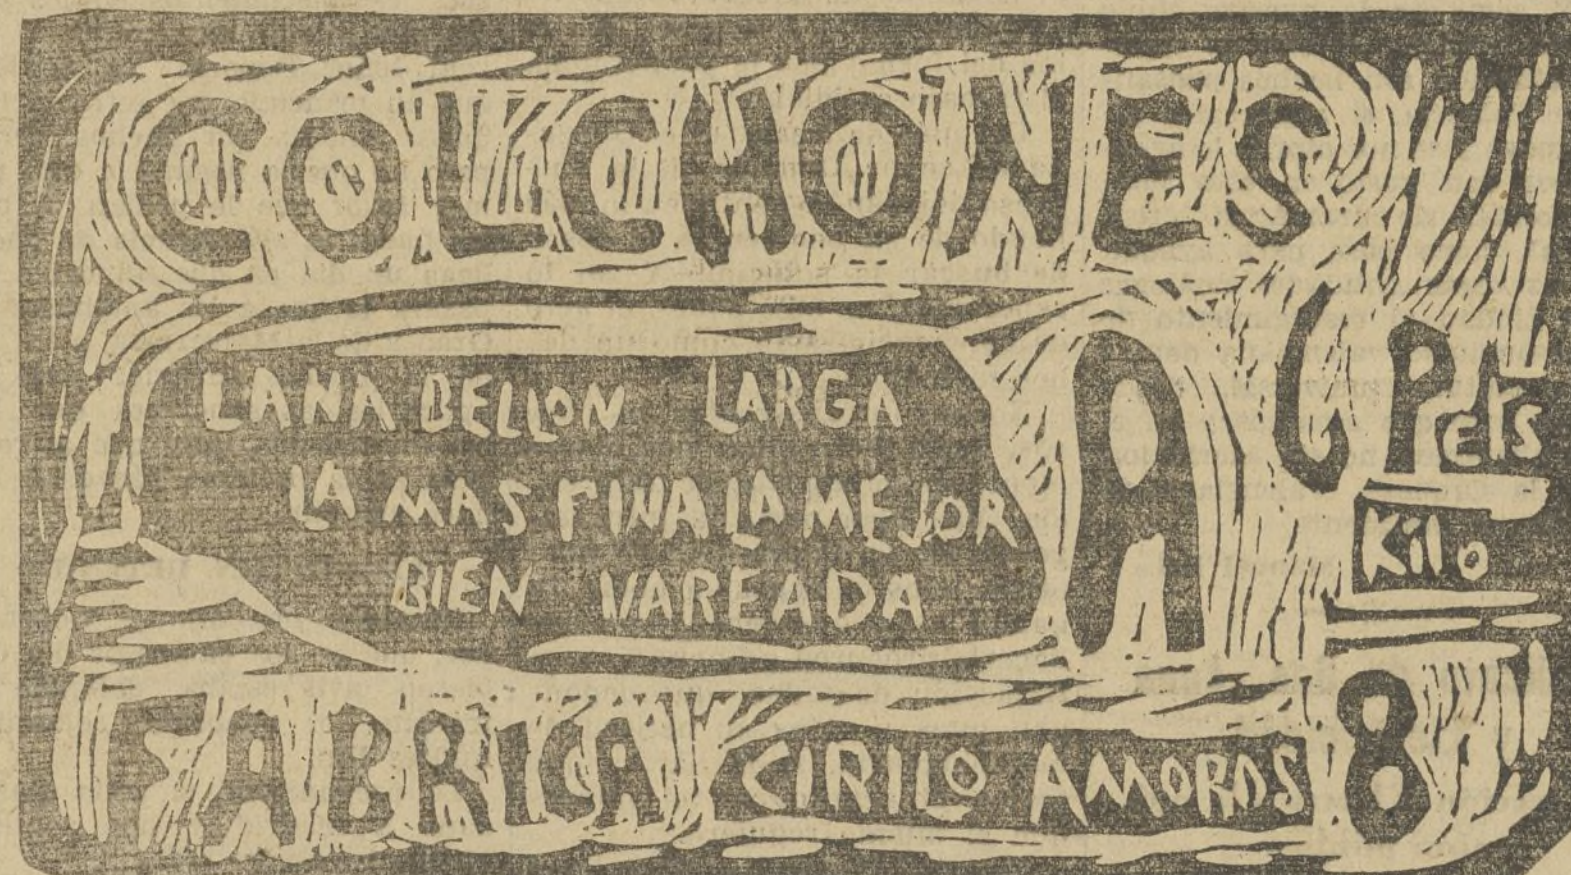 COLCHONES
LANA BELLON LARGA
LA MAS FINA LA MEJOR
BIEN VAREADA
A 6 Pets
Kilo
FABRICA CIRILO AMOROS 8